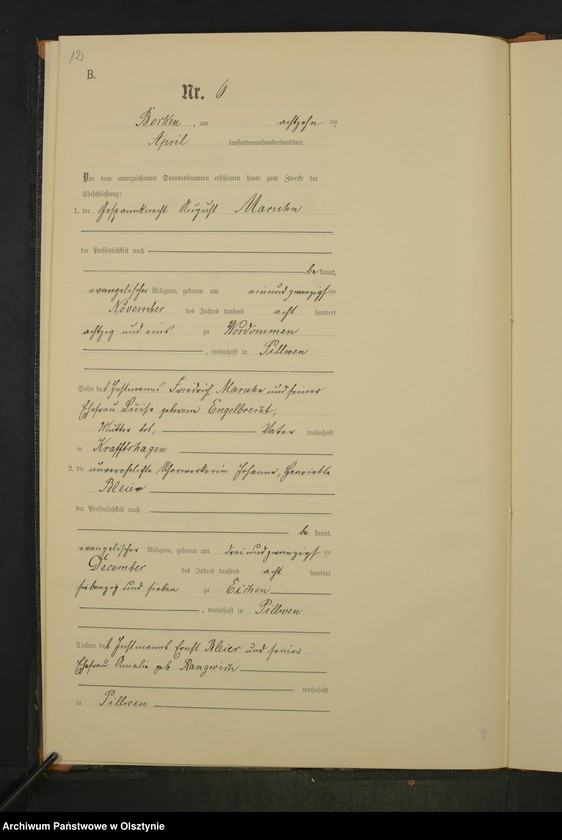 12
B.
Nr. 6
Borken, am achtzehn ten
April tausendneunhundertunddrei.
Vor dem unterzeichneten Standesbeamten erschienen heute zum Zwecke der
Eheschließung:
1. der Gespannknecht August Maruhn
der Persönlichkeit nach
be kannt,
evangelischer Religion, geboren am einundzwanzigsten
November des Jahres tausend acht hundert
achtzig und eins zu Wordommen
, wohnhaft in Pillwen
Sohn des Instmanns Friedrich Maruhn und seiner
Ehefrau Luise geborene Engelbrecht,
Mutter tot, Vater wohnhaft
in Krafftshagen
2. die unverehelichte Scharwerkerin Johanne, Henriette
Bleier
der Persönlichkeit nach
be kannt,
evangelischer Religion, geboren am dreiundzwanzigsten
December des Jahres tausend acht hundert
siebenzig und sieben zu Eichen
, wohnhaft in Pillwen
Tochter des Instmanns Ernst Bleier und seiner
Ehefrau Amalie geb
wohnhaft
in Pillwen
Archiwum Państwowe w Olsztynie